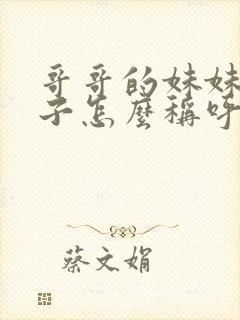 哥哥的妹妹
子怎麼稱呼
蔡文娟